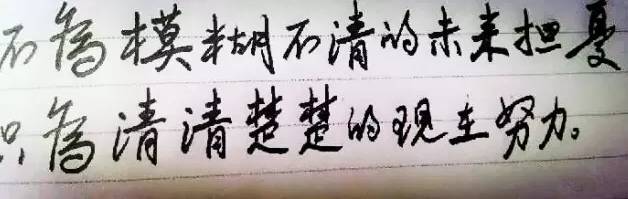 不為模糊不清的未来担憂
只為清清楚楚的现在努力。